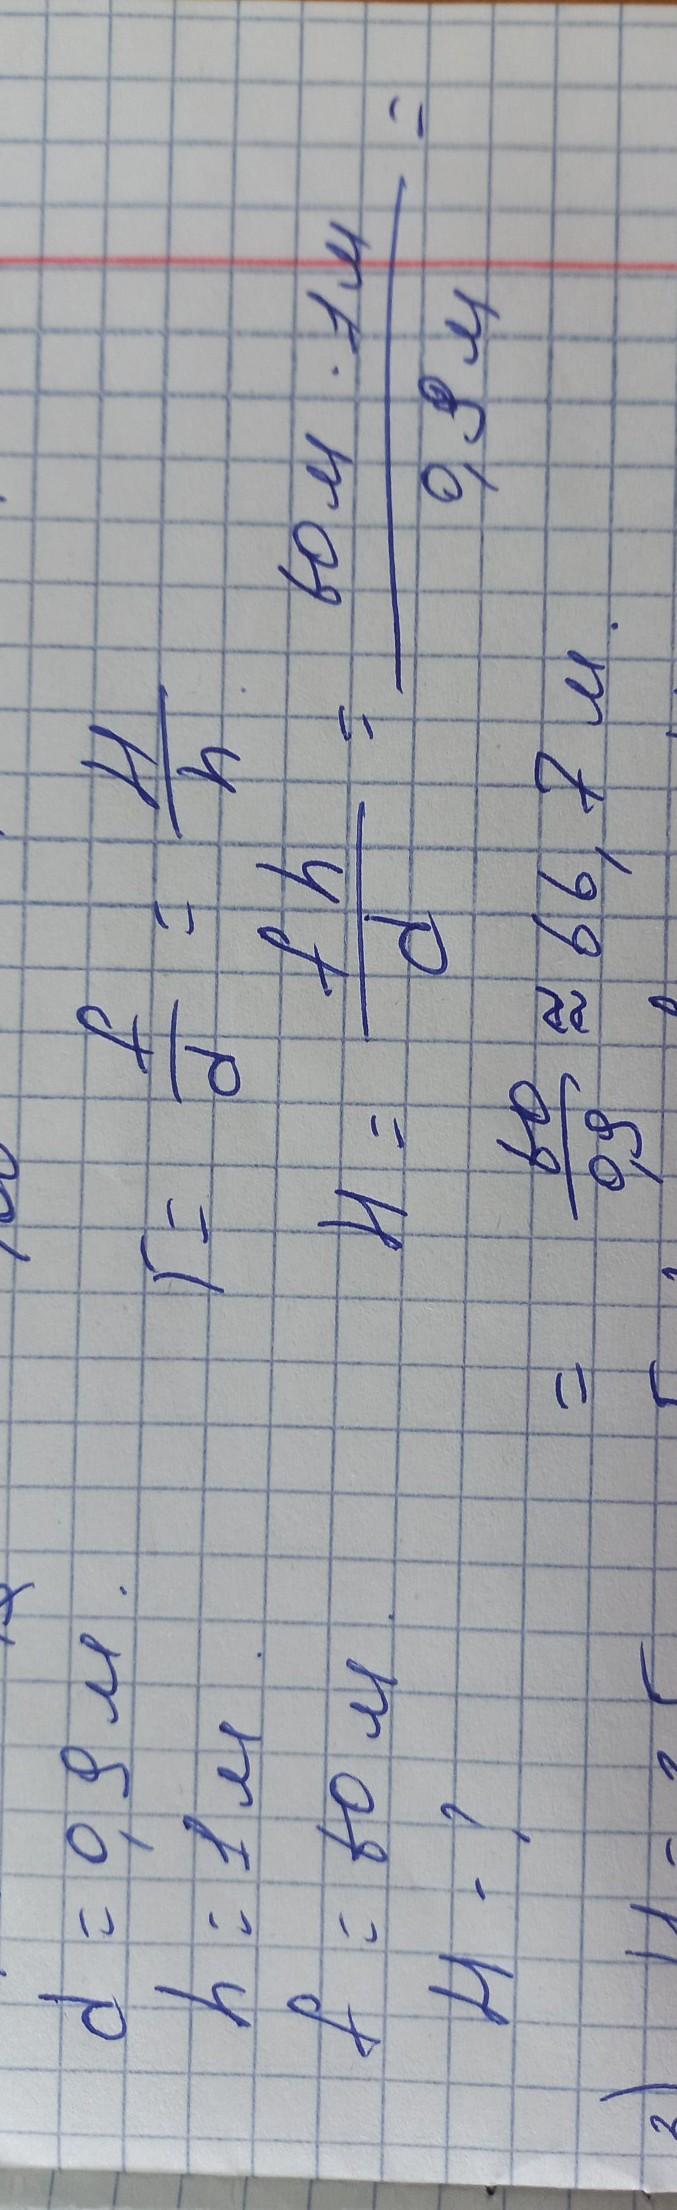 d = 0,9 м.
h = 1 м.
f = 60 м.
H - ?
Г = f/d = H/h
H = fh/d = 60 м · 1 м / 0,9 м =
= 60/0,9 ≈ 66,7 м.